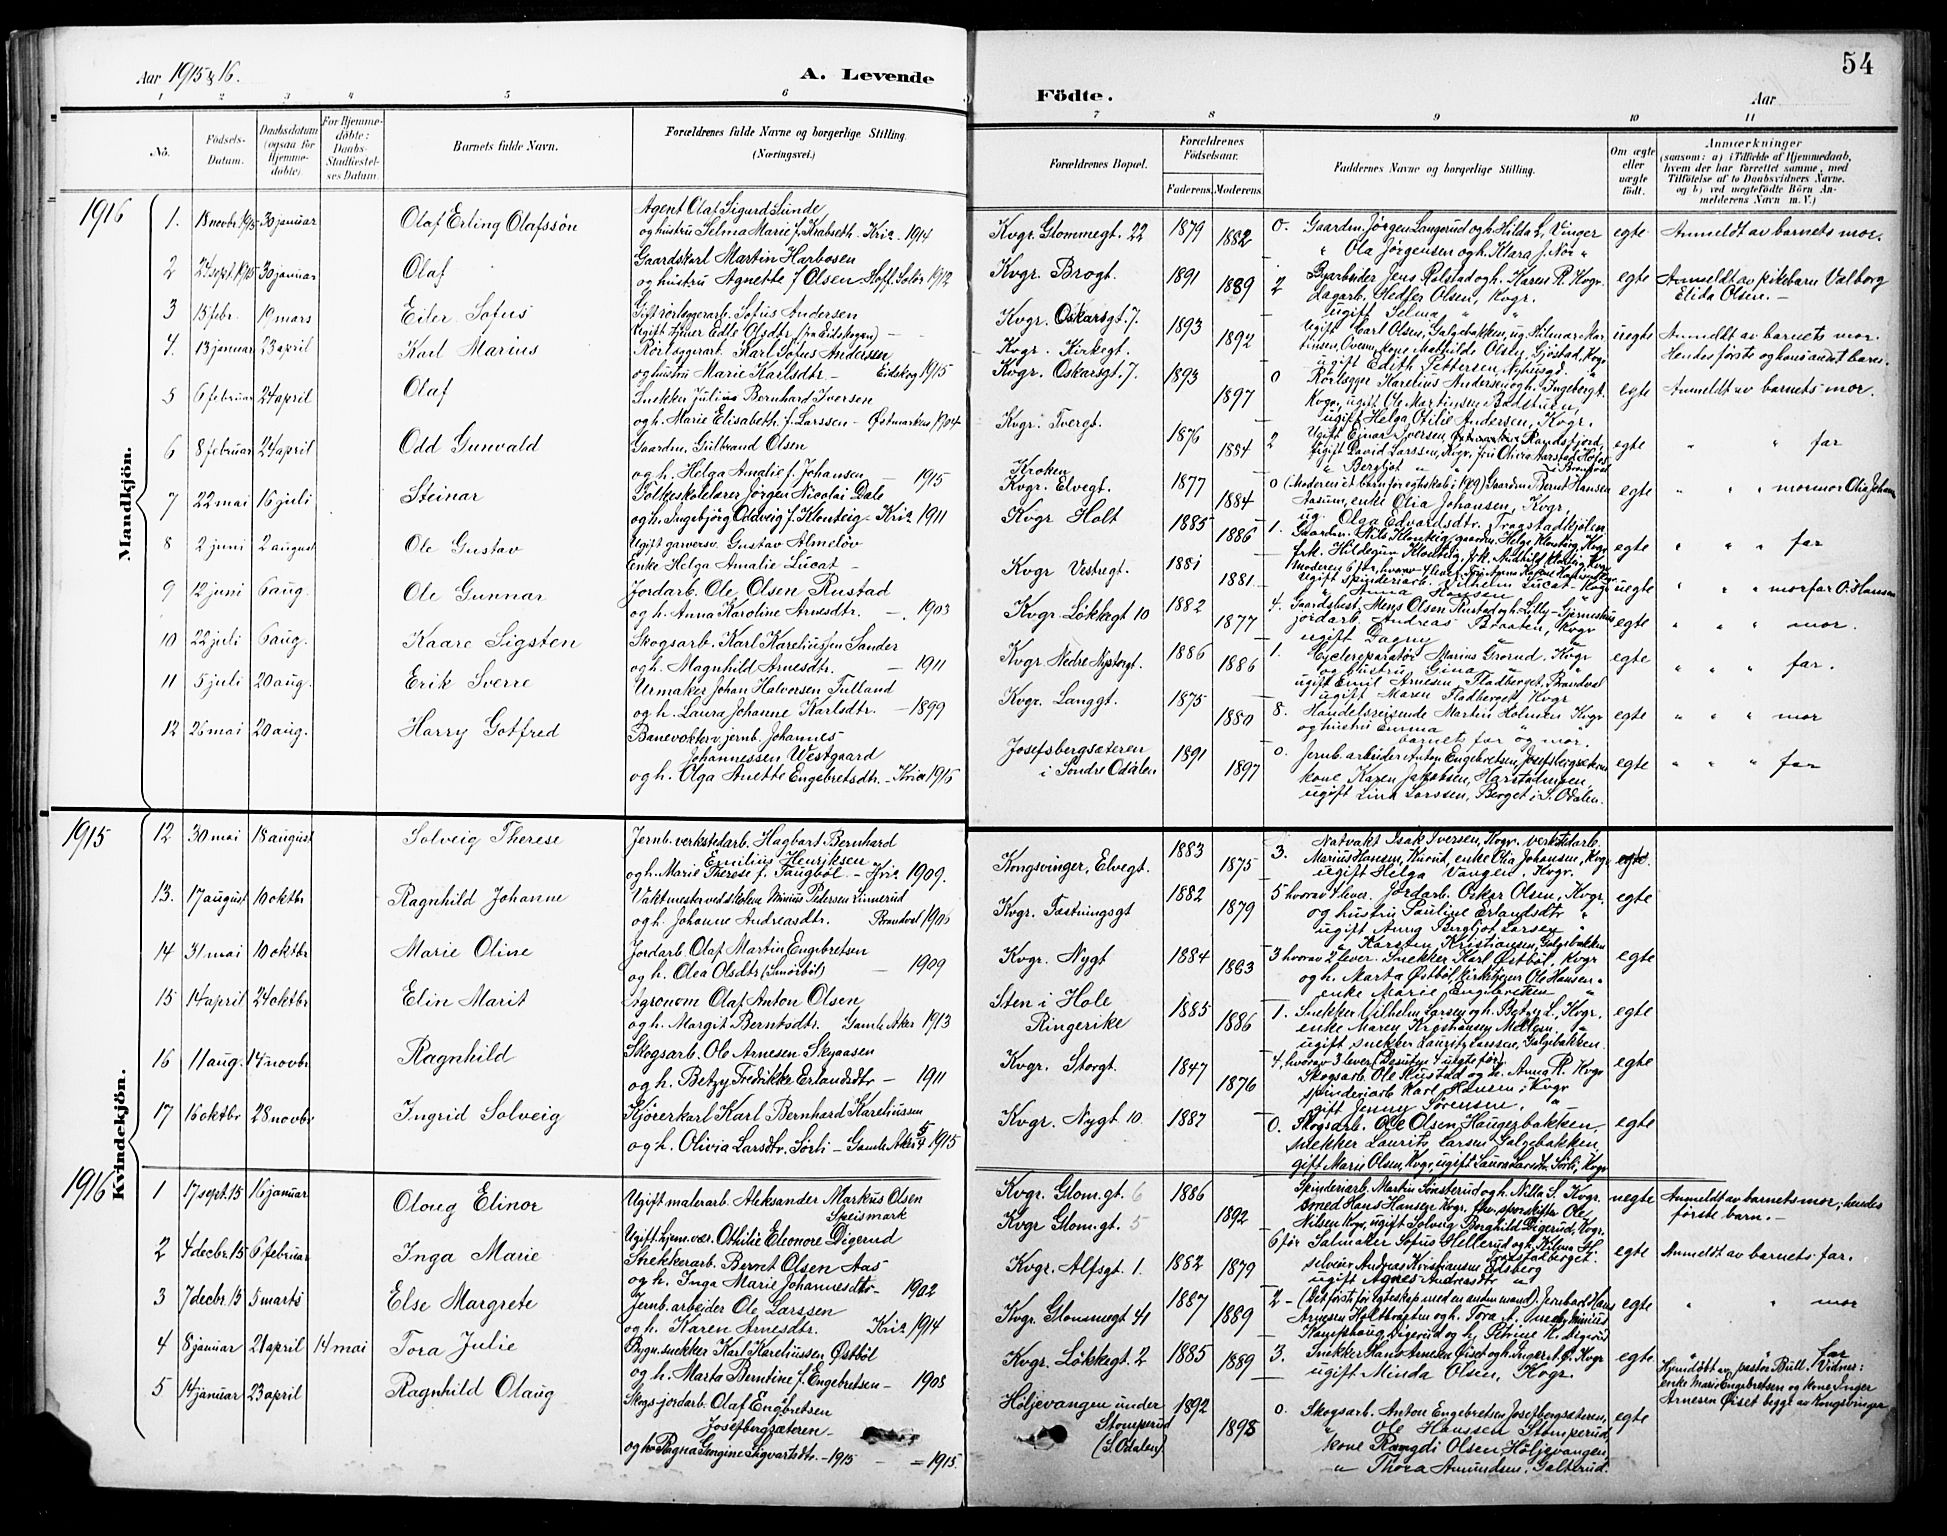 Aar 1915 & 16.
A. Levende
Födte.
Aar
54
1 2 3 4 5 6 7 8 9 10 11
No.
Födsels-
Datum.
Daabsdatum
(ogsaa for
Hjemme-
döbte).
For Hjemme-
döbte:
Daabs-
Stadfæstel-
ses Datum.
Barnets fulde Navn.
Forældrenes fulde Navne og borgerlige Stilling.
(Næringsvei.)
Forældrenes Bopæl.
Forældrenes
Födselsaar.
Faderens. Moderens.
Faddernes Navne og borgerlige Stilling.
Om ægte
eller
uægte
födt.
Anmærkninger
(saasom: a) i Tilfælde af Hjemmedaab,
hvem der har forrettet samme, med
Tilföielse af to Daabsvidners Navne.
og b) ved uægtefödte Börn An-
melderens Navn m. V.)
Mandkjön.
1916
1. 18 novbr 1915 30 januar Olaf Erling Olafssön
Agent Olaf Sigurd Sunde
og hustru Selma Marie f. Krabseth - Kria 1914
Kvgr. Glommegt. 22 1879 1882 0.
Gaardm. Jörgen Langerud og h. Hilda L, Vinger
" Ola Jörgensen og h. Klara J. Nör "
egte Anmeldt av barnets mor.
2 24 sept 1915 30 januar Olaf
Gaardskarl Martin Harbosen
og hustru Agnette f Olsen - Hoff. Solör 1912
Kvgr. Brogt. 1891 1889 2
Byarbeider Jens Rolstad og h. Karen R. Kvgr.
Dagarb. Hedfer Olsen, Kvgr.
ugift Selma " "
egte Anmeldt av pikebarn Valborg
Elida Olsen. -
3 13 febr. 19 mars Eiler Sofus
Gift rörlæggerarb. Sofus Andersen
Ugift tjener Edle Olsdtr. (fra Eidskogen) -
Kvgr. Oskarsgt. 7.
Kvgr. Kirkegt. 1893 1892
Ugift Carl Olsen, Galgebakken, ug. Hilmar Mar
tinsen, Overn, kone Mathilde Olsen, Gjöstad, Kvgr.
ugift Edith Pettersen, Nyhusgt. "
uegte Anmeldt av barnets mor.
Hendes förste og hans andet barn.
4. 13 januar 23 april Karl Marius
Rörlæggerarb. Karl Sofus Andersen
og hustru Marie Karlsdtr - Eidskog 1915
Kvgr. Oskarsgt. 7. 1893 1897 0
Rörlægger Karelius Andersen og h. Ingeborg A.
Kvgr, ugift Ole Martinsen Badstuen,
ugift Helga Otilie Andersen, Kvgr.
egte Anmeldt av barnets mor.
5 6 februar 24 april Olaf
Snekker Julius Bernhard Iversen
og h. Marie Elisabeth f. Larssen - Østmarken 1904
Kvgr. Tvergt. 1876 1884 2
Ugift Einar Iversen, Randsfjord,
Ugift David Larssen, Kvgr, frk Olivia Aarstad Hofos
" Bergljot " "
egte " " far
6 8 februar 24 april Odd Gunvald
Gaardm. Gulbrand Olsen
og h. Helga Amalie f. Johansen - 1915
Kroken
Kvgr. Elvegt. 1877 1884 0
(Moderen et barn før egteskab i 1909) Gaardm. Bernt Hansen
Aasum, enke Olia Johansen, Kvgr,
ug. Olga Edvardsdtr. Traastadkjölen
egte " " mormor Olia Johans
7 22 mai 16 juli Steinar
Folkeskolelærer Jörgen Nicolai Dale
og h. Ingebjörg Oddveig f. Klouteig - Kria 1911
Kvgr Holt 1885 1886 1.
Gaardm. Nils Klonteig, gaardm. Helge Klonteig, Kvgr,
frk. Hildegun Klonteig, frk. Anhild Klonteig, Kvgr
egte " " " far
8 2 juni 2 august Ole Gustav
Ugift garversv. Gustav Almelöv
Enke Helga Amalie Lucat -
Kvgr Vestregt. 1881 1881
Moderen 6 för, hvorav 4 lever.
ugift spinderiarb. Vilhelm Lucat - Kvgr
" Anna Hansen "
uegte " " " morfar O. Hansen
9 12 juni 6 aug. Ole Gunnar
Jordarb. Ole Olsen Rustad
og h. Anna Karoline Arnesdtr. - 1903
Kvgr. Lökkegt 10 1882 1877 4.
Gaardsbest. Mons Olsen Rustad og h. Lilly - Gjernshus
jordarb. Andreas Braaten, Kvgr
ugift Dagny "
egte " " " mor.
10 22 juli 6 aug. Kaare Sigsten
Skogsarb. Karl Kareliussen Sander
og h. Magnhild Arnesdtr. - 1911
Kvgr Nedre Nystorgt. 1886 1886 1.
Cyclereparatör Marius Grorud. Kvgr
og hustru Gina "
ugift Emil Arnesen, Fladberget, Brandval
ugift Maren Fladberget, Kvgr
egte " " " far.
11 5 juli 20 aug. Erik Sverre
Urmaker Johan Halvorsen Tulland
og h. Laura Johanne Karlsdtr. - 1899
Kvgr. Langgt. 1875 1880 8.
Handelsreisende Martin Holmen Kvgr
og hustru Emma "
barnets far og mor.
egte " " " mor
12 26 mai 20 aug. Harry Gotfred
Banevokter v. jernb. Johannes
Johannessen Westgaard
og h. Olga Anette Engebretsdtr. - Kria 1916
Josefsbergsæteren
i Söndre Odalen 1891 1897 0.
Jernb. arbeider Anton Engebretsen, Josefsbergsæteren
kone Karen Jakobsen, Harstadengen
ugift Lina Larssen, Berget i S. Odalen.
egte " " " far
Kvindekjön.
1915
12 30 mai 18 august Solveig Therese
Jernb. verkstedarb. Hagbart Bernhard
Emilius Henriksen
og h. Marie Therese f. Taugböl - Kria 1909.
Kongsvinger, Elvegt. 1883 1875 3.
Natvakt Isak Iversen, Kvgr. verkstedarb.
Marius Hansen, Kurud, enke Olia Johansen, Kvgr.
ugift Helga Vangen, Kvgr.
egte.
13. 17 august 10 oktbr Ragnhild Johanne
Vaktmester ved skolene Minius Pedersen Linnerud
og h. Johanne Andreasdtr. Brandval 1905
Kvgr. Fæstningsgt 1882 1879
5 hvorav 4 lever. Jordarb. Oskar Olsen, Kvgr.
og hustru Pauline Erlandsdtr "
ugift Anna Bergljot Larsen "
" Karsten Kristiansen, Galgebakken
egte
14 31 mai 10 oktbr. Marie Oline
Jordarb. Olaf Martin Engebretsen
og h. Olea Olsdtr (Smörböl) - 1909
Kvgr. Nygt 1884 1883
3 hvorav 2 lever. Snekker Karl Østböl, Kvgr
og h. Marta Østböl, kirketjener Ole Hansen "
enke Marie Engebretsen "
egte
15 14 april 24 oktbr Elin Marit
Agronom Olaf Anton Olsen
og h. Margit Berntsdtr. Gamle Aker 1913
Sten i Hole
Ringerike 1885 1886 1.
Snekker Vilhelm Larsen og h. Betzy L, Kvgr.
enke Maren Kristiansen Mellem. "
ugift snekker Lauritz Larssen, Galgebakken.
egte
16 11 aug. 14 novbr. Ragnhild
Skogsarb. Ole Arnesen Skyaasen
og h. Betzy Fredrikke Erlandsdtr - 1911
Kvgr. Storgt. 1847 1876
4, hvorav 3 lever (Desuten 4 uegte för).
Skogsarb. Ole Rustad og h. Anna R. Kvgr
spinderiarb Karl Hansen, Kvgr
gift Jenny Sörensen. "
egte
17 16 oktbr 28 novbr Ingrid Solveig
Kjörerkarl Karl Bernhard Kareliussen
og h. Olivia Larsdtr. Sörli - Gamle Aker 1915
Kvgr. Nygt 10 1887 0.
Skogsarb. Ole Olsen Haugerbakken,
snekker Laurits Larsen Galgebakken,
gift Marie Olsen, Kvgr, ugift Laura Larsdtr. Sörli, Kvgr
egte
1916
1 17 sept. 15 16 januar Olaug Elinor
Ugift malerarb. Aleksander Markus Olsen
Speismark
Ugift hjem.vær. Othilie Eleonore Digerud
Kvgr. Glom.gt. 6 1886
Kvgr Glom.gt. 5 1892
Spinderiarb. Martin Sönsterud og h. Nilla S. Kvgr.
bonde Hans Hansen Kvgr. fhv. sporskifter Ole
Nilsen Kvgr, ugift Solveig Borghild Digerud, Kvgr.
uegte Anmeldt av barnets mor, hendes
förste barn. -
2 4 decbr. 15 6 februar Inga Marie
Snekkerarb. Bernt Olsen Aas
og h. Inga Marie Johannesdtr - 1902
Kvgr. Alfsgt 1. 1882 1879
6 för Salmaker Sofus Hellerud og h. Hilma H.
selveier Andreas Kristiansen Edsberg
ugift Agnes Andreasdtr "
egte Anmeldt av barnets far.
3 7 decbr. 15 5 marts Else Margrete
Jernb. arbeider Ole Larssen
og h. Karen Arnesdtr. Kria 1914
Kvgr. Glommegt 41 1887 1889
2 - (Det förste för egteskap med en anden mand). Jernbarb. Hans
Arnesen Holtbraaten og h. Tora A.
Kamphaug, Digerud og h. Petrine K. Digerud
egte " " mor
4 8 januar 21 april 14 mai Tora Julie
Bygn.snekker Karl Kareliussen Østböl
og h. Marta Berntine f. Engebretsen - 1908
Kvgr. Lökkegt. 2 1885 1889 3.
Snekker Hans Arnesen Øiset og h. Inger A. Ø. Kvgr
ugift Minda Olsen, Kvgr.
egte " " far
Hjemdöbt av pastor Bull. Vidner:
enke Marie Engebretsen og kone Inger
Arnesen Øiset begge av Kongsvinger
5 14 januar 23 april Ragnhild Olaug
Skogs-jordarb. Olaf Engebretsen
Josefbergsæteren -
og h. Ragna Gengine Sigvartsdtr. - 1915 - = 1915.
Höljevangen under
Stomperud
(S. Odalen) 1892 1898 0.
Skogsarb. Anton Engebretsen Josefbergsæteren,
" Ole Hanssen Stomperud
kone Rangdi Olsen Höljevangen,
" Thora Amundsen, Galterud.
egte